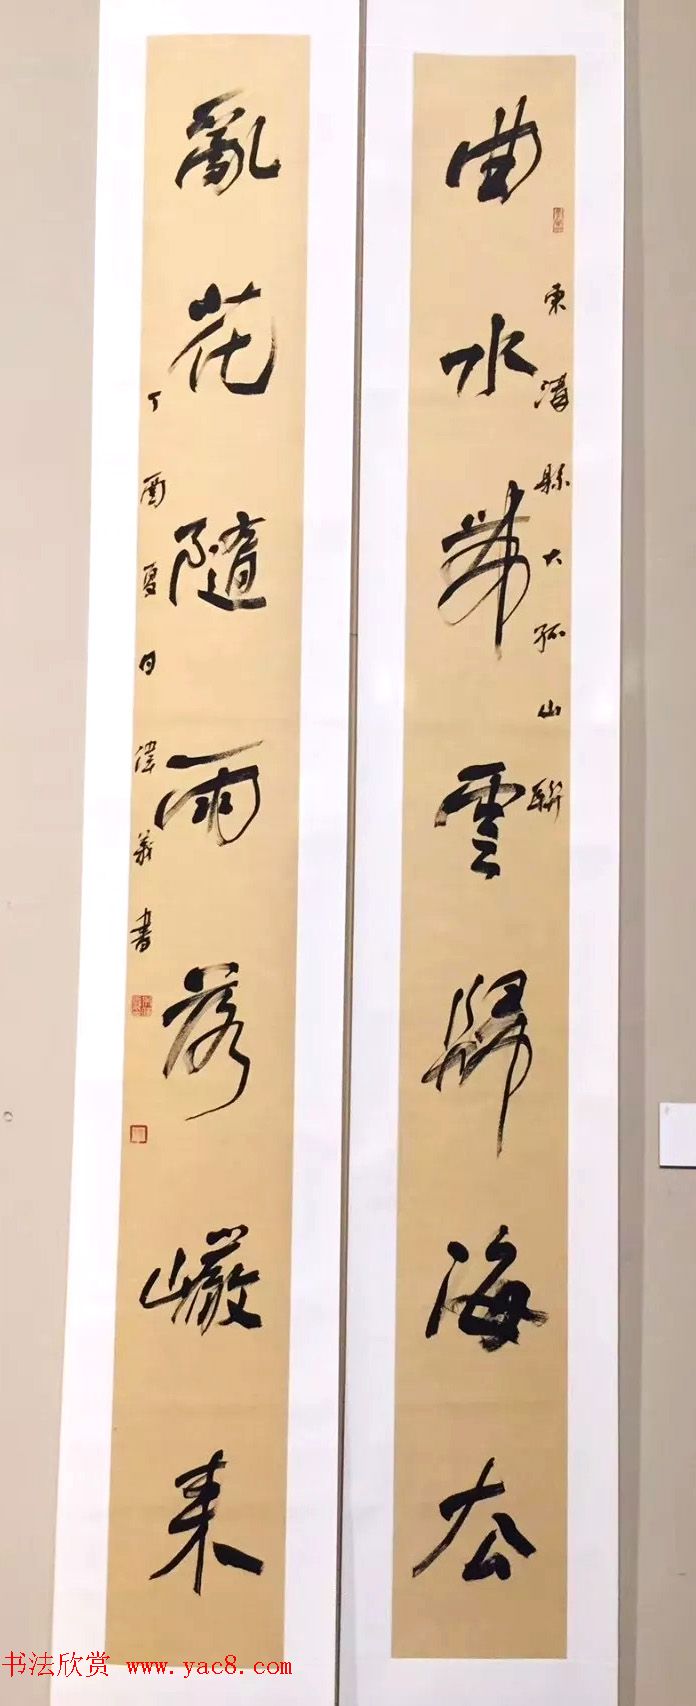 曲水帶雲歸海去
東溝縣大孤山聯
亂花隨雨落巖來
丁酉夏日偉義書
书法欣赏 www.yac8.com